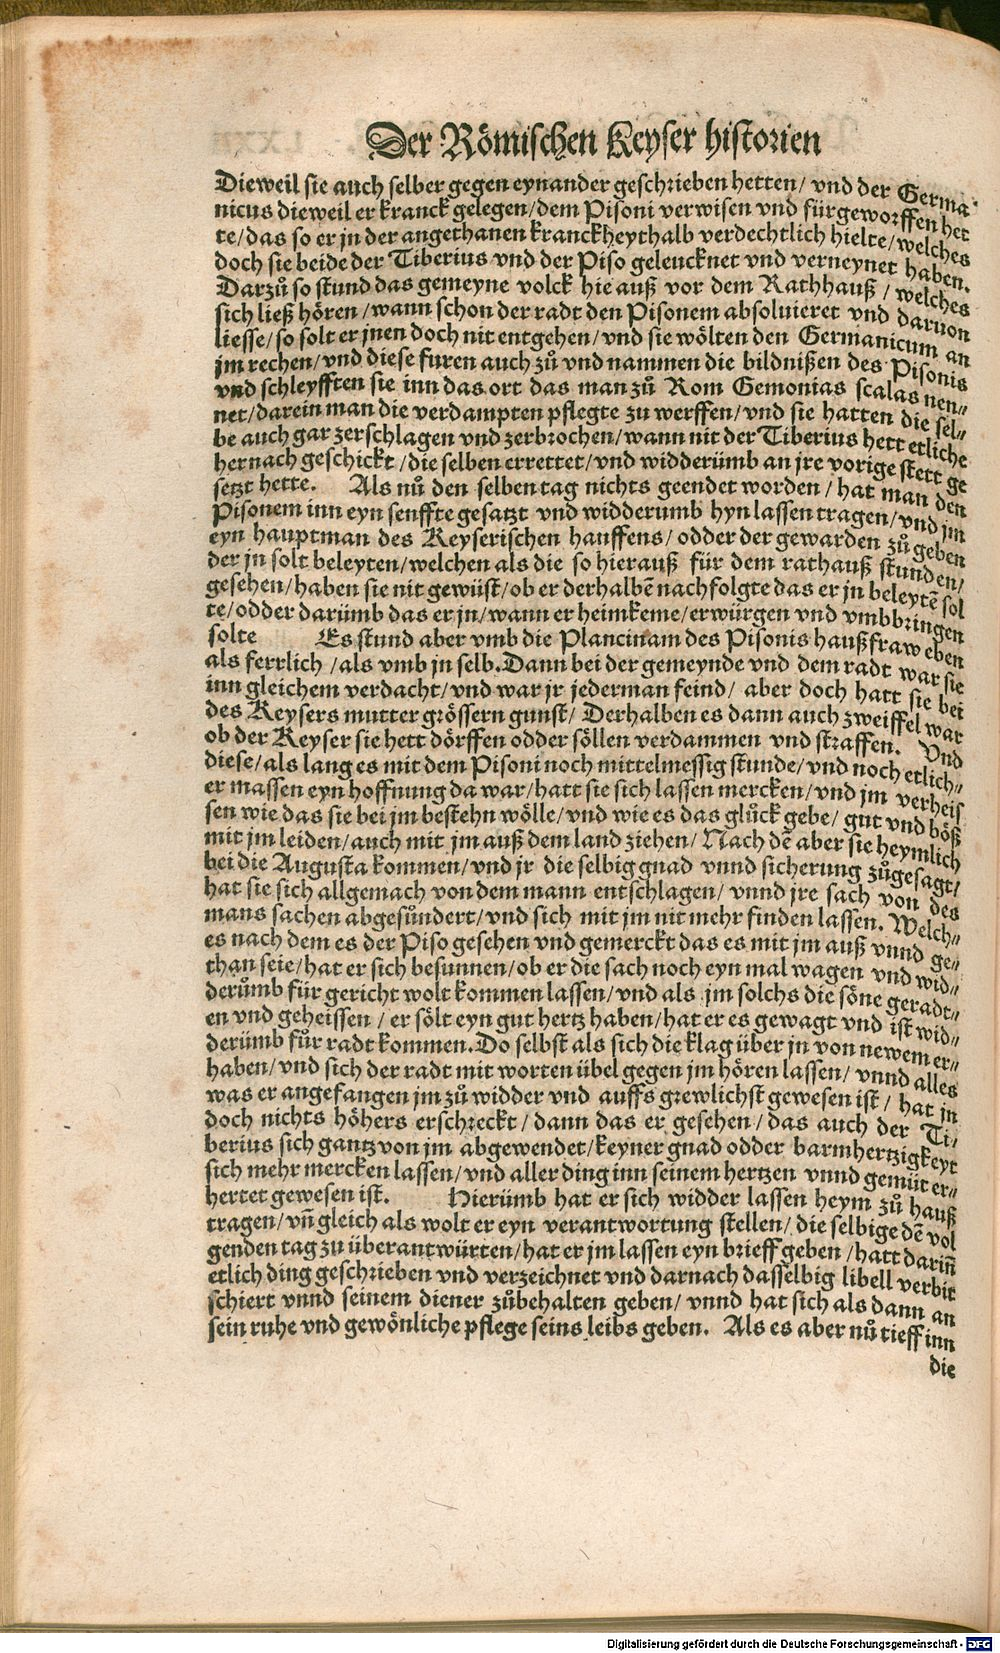 Der Römischen Keyser historien
Dieweil sie auch selber gegen eynander geschrieben hetten/ vnd der Germa⸗
nicus dieweil er kranck gelegen/dem Pisoni verwisen vnd fürgeworffen het
te/das so er jn der angethanen kranckheythalb verdechtlich hielte/welches
doch sie beide der Tiberius vnd der Piso geleucknet vnd verneynet haben.
Darzů so stund das gemeyne volck hie auß vor dem Rathhauß / welches
sich ließ hören/wann schon der radt den Pisonem absoluieret vnd daruon
liesse/so solt er jnen doch nit entgehen/vnd sie wölten den Germanicum an
jm rechen/vnd diese furen auch zů vnd nammen die bildnißen des Pisonis
vnd schleyfften sie inn das ort das man zů Rom Gemonias scalas nen⸗
net/darein man die verdampten pflegte zu werffen/vnd sie hatten die sel⸗
be auch gar zerschlagen vnd zerbrochen/wann nit der Tiberius hett etliche
hernach geschickt/die selben errettet/vnd widderümb an jre vorige stett ge
setzt hette. Als nů den selben tag nichts geendet worden/ hat man den
Pisonem inn eyn senffte gesatzt vnd widderumb hyn lassen tragen/vnd jm
eyn hauptman des Keyserischen hauffens/ odder der gewarden zů geben
der jn solt beleyten/welchen als die so hierauß für dem rathauß stunden/
gesehen/haben sie nit gewüst/ob er derhalbē nachfolgte das er jn beleytē sol
te/odder darümb das er jn/wann er heimkeme/erwürgen vnd vmbbringen
solte Es stund aber vmb die Plancinam des Pisonis haußfraw eben
als ferrlich/als vmb jn selb. Dann bei der gemeynde vnd dem radt war sie
inn gleichem verdacht/vnd war jr jederman feind/ aber doch hatt sie bei
des Keysers mutter grössern gunst/ Derhalben es dann auch zweiffel war
ob der Keyser sie hett dörffen odder söllen verdammen vnd straffen. Vnd
diese/als lang es mit dem Pisoni noch mittelmessig stunde/vnd noch etlich⸗
er massen eyn hoffnung da war/hatt sie sich lassen mercken/vnd jm verheis
sen wie das sie bei jm bestehn wölle/vnd wie es das glůck gebe/ gut vnd böß
mit jm leiden/auch mit jm auß dem land ziehen/ Nach dē aber sie heymlich
bei die Augusta kommen/vnd jr die selbig gnad vnnd sicherung zůgesagt/
hat sie sich allgemach von dem mann entschlagen/ vnnd jre sach von des
mans sachen abgesůndert/vnd sich mit jm nit mehr finden lassen. Welch⸗
es nach dem es der Piso gesehen vnd gemerckt das es mit jm auß vnnd ge⸗
than seie/hat er sich besunnen/ob er die sach noch eyn mal wagen vnd wid⸗
derůmb für gericht wolt kommen lassen/vnd als jm solchs die söne geradt⸗
en vnd geheissen / er sölt eyn gut hertz haben/hat er es gewagt vnd ist wid⸗
derümb fůr radt kommen. Do selbst als sich die klag über jn von newem er⸗
haben/vnd sich der radt mit worten übel gegen jm hören lassen/ vnnd alles
was er angefangen jm zů widder vnd auffs grewlichst gewesen ist/ hat jn
doch nichts höhers erschreckt/ dann das er gesehen/das auch der Ti⸗
berius sich gantz von jm abgewendet/keyner gnad odder barmhertzigkeyt
sich mehr mercken lassen/vnd aller ding inn seinem hertzen vnnd gemüt er⸗
hertet gewesen ist. Hierümb hat er sich widder lassen heym zů hauß
tragen/vñ gleich als wolt er eyn verantwortung stellen/die selbige dē vol
genden tag zu überantwürten/hat er jm lassen eyn brieff geben/hatt dariñ
etlich ding geschrieben vnd verzeichnet vnd darnach dasselbig libell verbit
schiert vnnd seinem diener zůbehalten geben/ vnnd hat sich als dann an
sein ruhe vnd gewönliche pflege seins leibs geben. Als es aber nů tieff inn
die
Digitalisierung gefördert durch die Deutsche Forschungsgemeinschaft - DFG